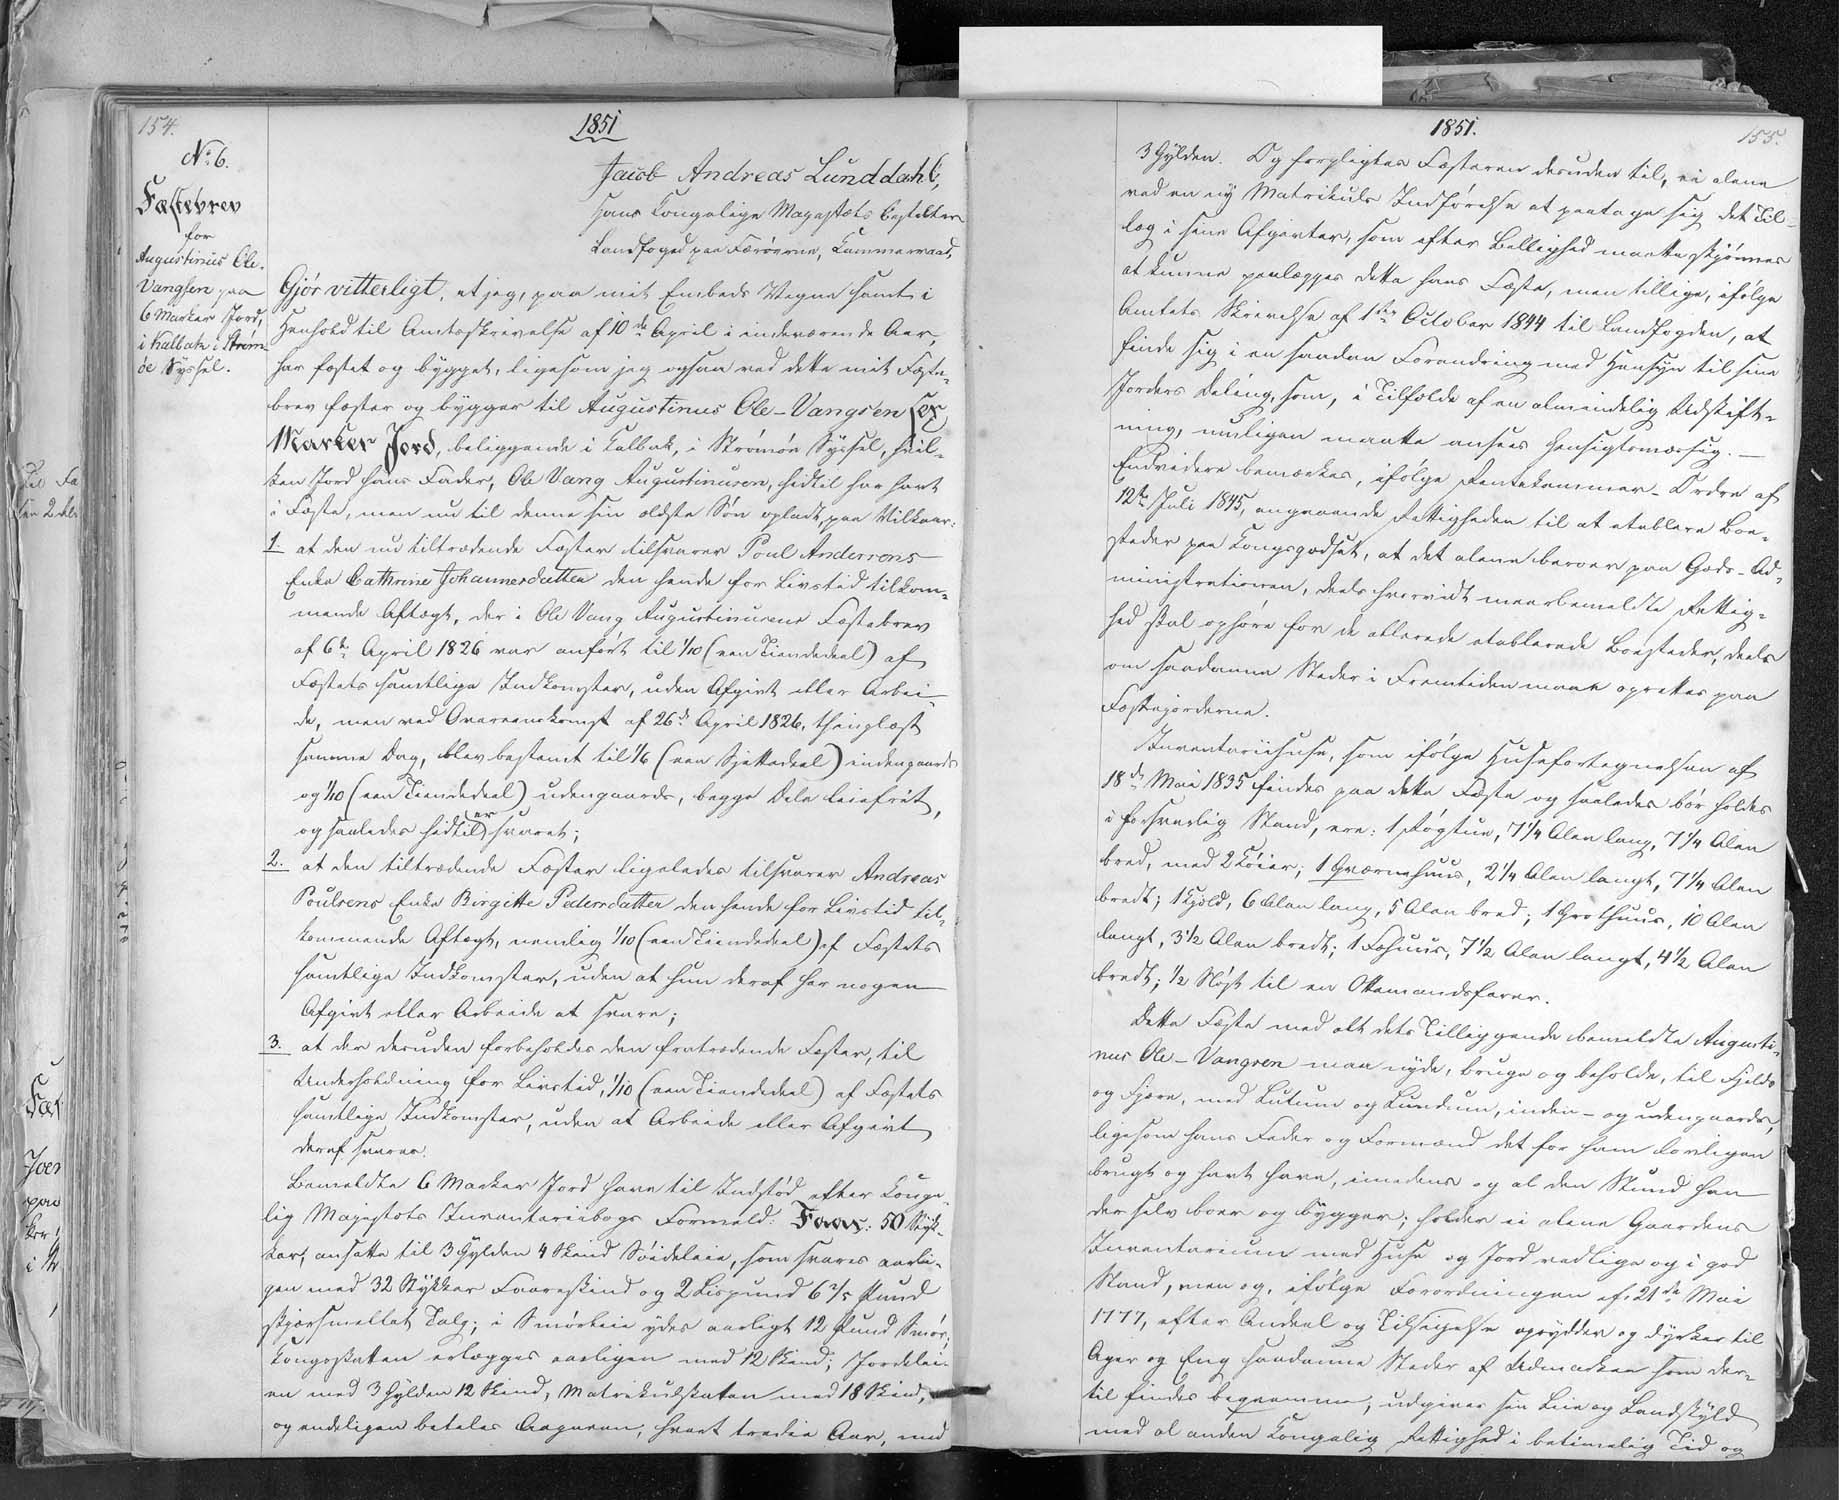 154.
1851
No 6.
Fæstebrev
for
Augustinus Ole-
Vangsen paa
6 Marker Jord,
i Kalbak i Strøm-
øe Syssel.
Jacob Andreas Lunddahl,
Hans Kongelige Majestæts bestalter
Landfoged paa Færøerne, Kammerraad,
Gjør vitterligt, at jeg, paa mit Embeds Vegne samt i
Henhold til Amtsskrivelse af 10de April i indeværende Aar,
har fæstet og bygget, ligesom jeg ogsaa ved dette mit Fæste-
brev fæster og bygger til Augustinus Ole-Vangsen sex
Marker Jord, beliggende i Kalbak, i Strømøe Syssel, hvil-
ken Jord hans Fader, Ole Vang Augustinusen, hidtil har havt
i Fæste, men nu til denne sin ældste Søn opladt, paa Vilkaar:
1. at den nu tiltrædende Fæster tilsvarer Poul Andersens
Enke Cathrine Johannesdatter den hende for Livstid tilkom-
mende Aftægt, der i Ole Vang Augustinusens Fæstebrev
af 6te April 1826 var anført til 1/10 (een Tiendedeel) af
Fæstets samtlige Indkomster, uden Afgivt eller Arbei-
de, men ved Overeenskomst af 26de April 1826, thinglæst
samme Dag, blev bestemt til 1/6 (een Sjettedeel) indengaards
og 1/10 (een Tiendedeel) udengaards, begge Dele leiefrit,
og saaledes hidtil er svaret;
2. at den tiltrædende Fæster ligeledes tilsvarer Andreas
Poulsens Enke Birgitte Pedersdatter den hende for Livstid til-
kommende Aftægt, nemlig 1/10 (een Tiendedeel) af Fæstets
samtlige Indkomster, uden at hun deraf har nogen
Afgivt eller Arbeide at svare;
3. at der desuden forbeholdes den fratrædende Fæster, til
Underholdning for Livstid, 1/10 (een Tiendedeel) af Fæstets
samtlige Indkomster, uden at Arbeide eller Afgivt
deraf svares.
Bemeldte 6 Marker Jord have til Indstød efter Konge-
lig Majestæts Inventariibogs Formeld: Faar: 50 Styk-
ker, ansatte til 3 Gylden 4 Skind Søideleie, som svares aarli-
gen med 32 Stykker Faareskind og 2 Lispund 6 2/5 Pund
skjærsmeltet Talg; i Smørleie ydes aarligt 12 Pund Smør;
Kongsskatten erlægges aarligen med 12 Skind; Jordelei-
en med 3 Gylden 12 Skind, Matrikulskatten med 18 Skind,
og endeligen betales Aagaven, hvert tredie Aar, med
1851.
155.
3 Gylden. Og forpligtes Fæsteren desuden til, ei alene
ved en ny Matrikuls Indførelse at paatage sig det Til-
læg i sine Afgivter, som efter Billighed maatte skjønnes
at kunne paalægges dette hans Fæste, men tillige, ifølge
Amtets Skrivelse af 1ste October 1844 til Landfogden, at
finde sig i en saadan Forandring med Hensyn til sine
Jorders Deling, som, i Tilfælde af en almindelig Udskift-
ning, muligen maatte ansees hensigtsmæssig. —
Endvidere bemærkes, ifølge Rentekammer-Ordre af
12te Juli 1845, angaaende Rettigheden til at etablere Boe-
steder paa Kongsgodset, at det alene beroer paa Gods-Ad-
ministrationen, deels hvorvidt meerbemeldte Rettig-
hed skal ophøre for de allerede etablerede Boesteder, deels
om saadanne Steder i Fremtiden maae oprettes paa
Fæstejorderne.
Inventariihuse, som ifølge Husefortegnelsen af
18de Mai 1835 findes paa dette Fæste og saaledes bør holdes
i forsvarlig Stand, ere: 1 Røgstue, 7 1/4 Alen lang, 7 1/4 Alen
bred, med 2 Køier; 1 Qværnehuus, 2 1/4 Alen langt, 7 1/4 Alen
bredt; 1 Hjald, 6 Alen lang, 5 Alen bred; 1 Grothuus, 10 Alen
langt, 3 1/2 Alen bredt; 1 Fæhuus, 7 1/2 Alen langt, 4 1/2 Alen
bredt; 1/2 Nøst til en Ottemandsfarer.
Dette Fæste med alt dets Tilliggende bemeldte Augusti-
nus Ole-Vangsen maa nyde, bruge og beholde, til Fjelds
og Fjære, med Lutum og Lundum, inden- og udengaards,
ligesom hans Fader og Formænd det for ham lovligen
brugt og havt have, imedens og al den Stund han
der selv boer og bygger; holder ei alene Gaardens
Inventarium med Huse og Jord vedlige og i god
Stand, men og, ifølge Forordningen af 21de Mai
1777, efter Andeel og Tilsigelse oprydder og dyrker til
Ager og Eng saadanne Steder af Udmarken som der-
til findes beqvemme, udgiver sin Leie og Landskyld
med al anden Kongelig Rettighed i betimelig Tid og